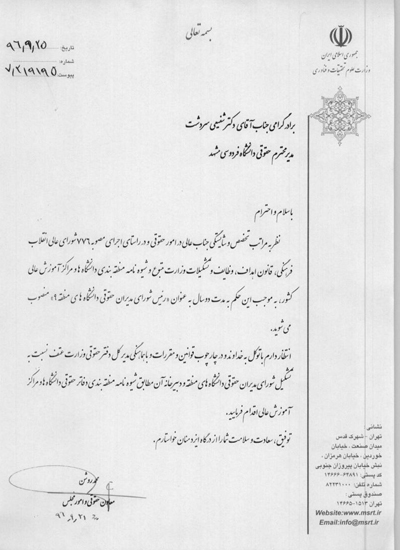 بسمه تعالی
جمهوری اسلامی ایران
وزارت علوم تحقیقات و فناوری
تاریخ ۹۶,۹,۲۵
شماره ۷/۲۱۹۱۹۵
پیوست
برادر گرامی جناب آقای دکتر شفیعی سردشت
مدیر محترم حقوقی دانشگاه فردوسی مشهد
با سلام و احترام
نظر به مراتب تخصص و شایستگی جناب عالی در امور حقوقی و در راستای اجرای مصوبه ۷۷۶ شورای عالی انقلاب
فرهنگی، قانون اهداف، وظایف و تشکیلات وزارت متبوع و شیوه نامه منطقه بندی دانشگاه ها و مراکز آموزش عالی
کشور، به موجب این حکم به مدت دو سال به عنوان «رئیس شورای مدیران حقوقی دانشگاه های منطقه ۹» منصوب
می شوید.
انتظار دارم با توکل به خداوند و در چارچوب قوانین و مقررات و با هماهنگی مدیر کل دفتر حقوقی وزارت عتف نسبت به
تشکیل شورای مدیران حقوقی دانشگاه های منطقه و دبیرخانه آن مطابق شیوه نامه منطقه بندی دفاتر حقوقی دانشگاه ها و مراکز
آموزش عالی اقدام فرمایید.
توفیق، سعادت و سلامت شما را از درگاه ایزد منان خواستارم.
معاون حقوقی و امور مجلس
نشانی
تهران - شهرک قدس
میدان صنعت، خیابان
خوردین، خیابان هرمزان،
نبش خیابان پیروزان جنوبی
کد پستی: ۱۴۶۶۶-۶۴۸۹۱
شماره تلفن: ۸۲۲۳۱۰۰۰
صندوق پستی:
تهران ۱۵۱۳-۱۴۶۶۵
Website:www.msrt.ir
Email:info@msrt.ir